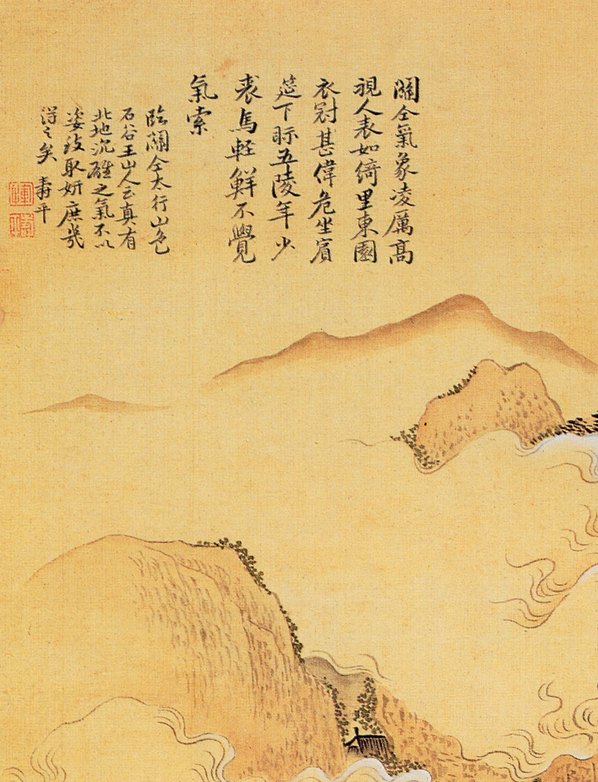 關仝氣象凌厲高
視人表如綺里東園
衣冠甚偉危坐賓
筵下眎五陵年少
裘馬輕鮮不覺
氣索
臨關仝太行山色
石谷王山人云真有
北地沉雄之氣不以
姿致取妍庶幾
得之矣 壽平